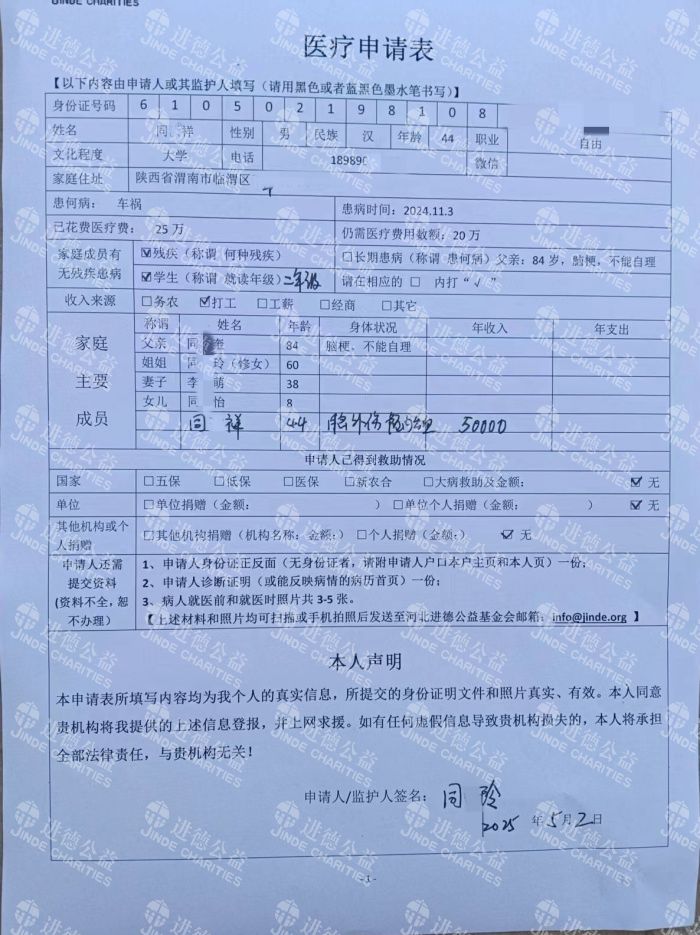 JINDE CHARITIES
医疗申请表
【以下内容由申请人或其监护人填写（请用黑色或者蓝黑色墨水笔书写）】
身份证号码 6 1 0 5 0 2 1 9 8 1 0 8
姓名 同 祥 性别 男 民族 汉 年龄 44 职业 自由
文化程度 大学 电话 18989 微信
家庭住址 陕西省渭南市临渭区
患何病： 车祸 患病时间：2024.11.3
已花费医疗费： 25 万 仍需医疗费用数额：20 万
家庭成员有无残疾患病 ☑残疾（称谓 何种残疾） □长期患病（称谓 患何病）父亲：84 岁，脑梗，不能自理
☑学生（称谓 就读年级）二年级 请在相应的 □ 内打“√”
收入来源 □务农 ☑打工 □工薪 □经商 □其它
家庭主要成员 称谓 姓名 年龄 身体状况 年收入 年支出
父亲 同 奎 84 脑梗、不能自理
姐姐 同 玲（修女） 60
妻子 李 萌 38
女儿 同 怡 8
同 祥 44 50000
申请人已得到救助情况
国家 □五保 □低保 □医保 □新农合 □大病救助及金额： ☑ 无
单位 □单位捐赠（金额： ） □单位个人捐赠（金额： ） ☑ 无
其他机构或个人捐赠 □其他机构捐赠（机构名称：金额:） □个人捐赠（金额:） ☑ 无
申请人还需提交资料（资料不全，恕不办理）
1、申请人身份证正反面（无身份证者，请附申请人户口本户主页和本人页）一份；
2、申请人诊断证明（或能反映病情的病历首页）一份；
3、病人就医前和就医时照片共 3-5 张。
【上述材料和照片均可扫描或手机拍照后发送至河北进德公益基金会邮箱：info@jinde.org 】
本人声明
本申请表所填写内容均为我个人的真实信息，所提交的身份证明文件和照片真实、有效。本人同意
贵机构将我提供的上述信息登报，并上网求援。如有任何虚假信息导致贵机构损失的，本人将承担
全部法律责任，与贵机构无关！
申请人/监护人签名： 同 玲
2025 年 5 月 2 日
- 1 -
进德公益
JINDE CHARITIES